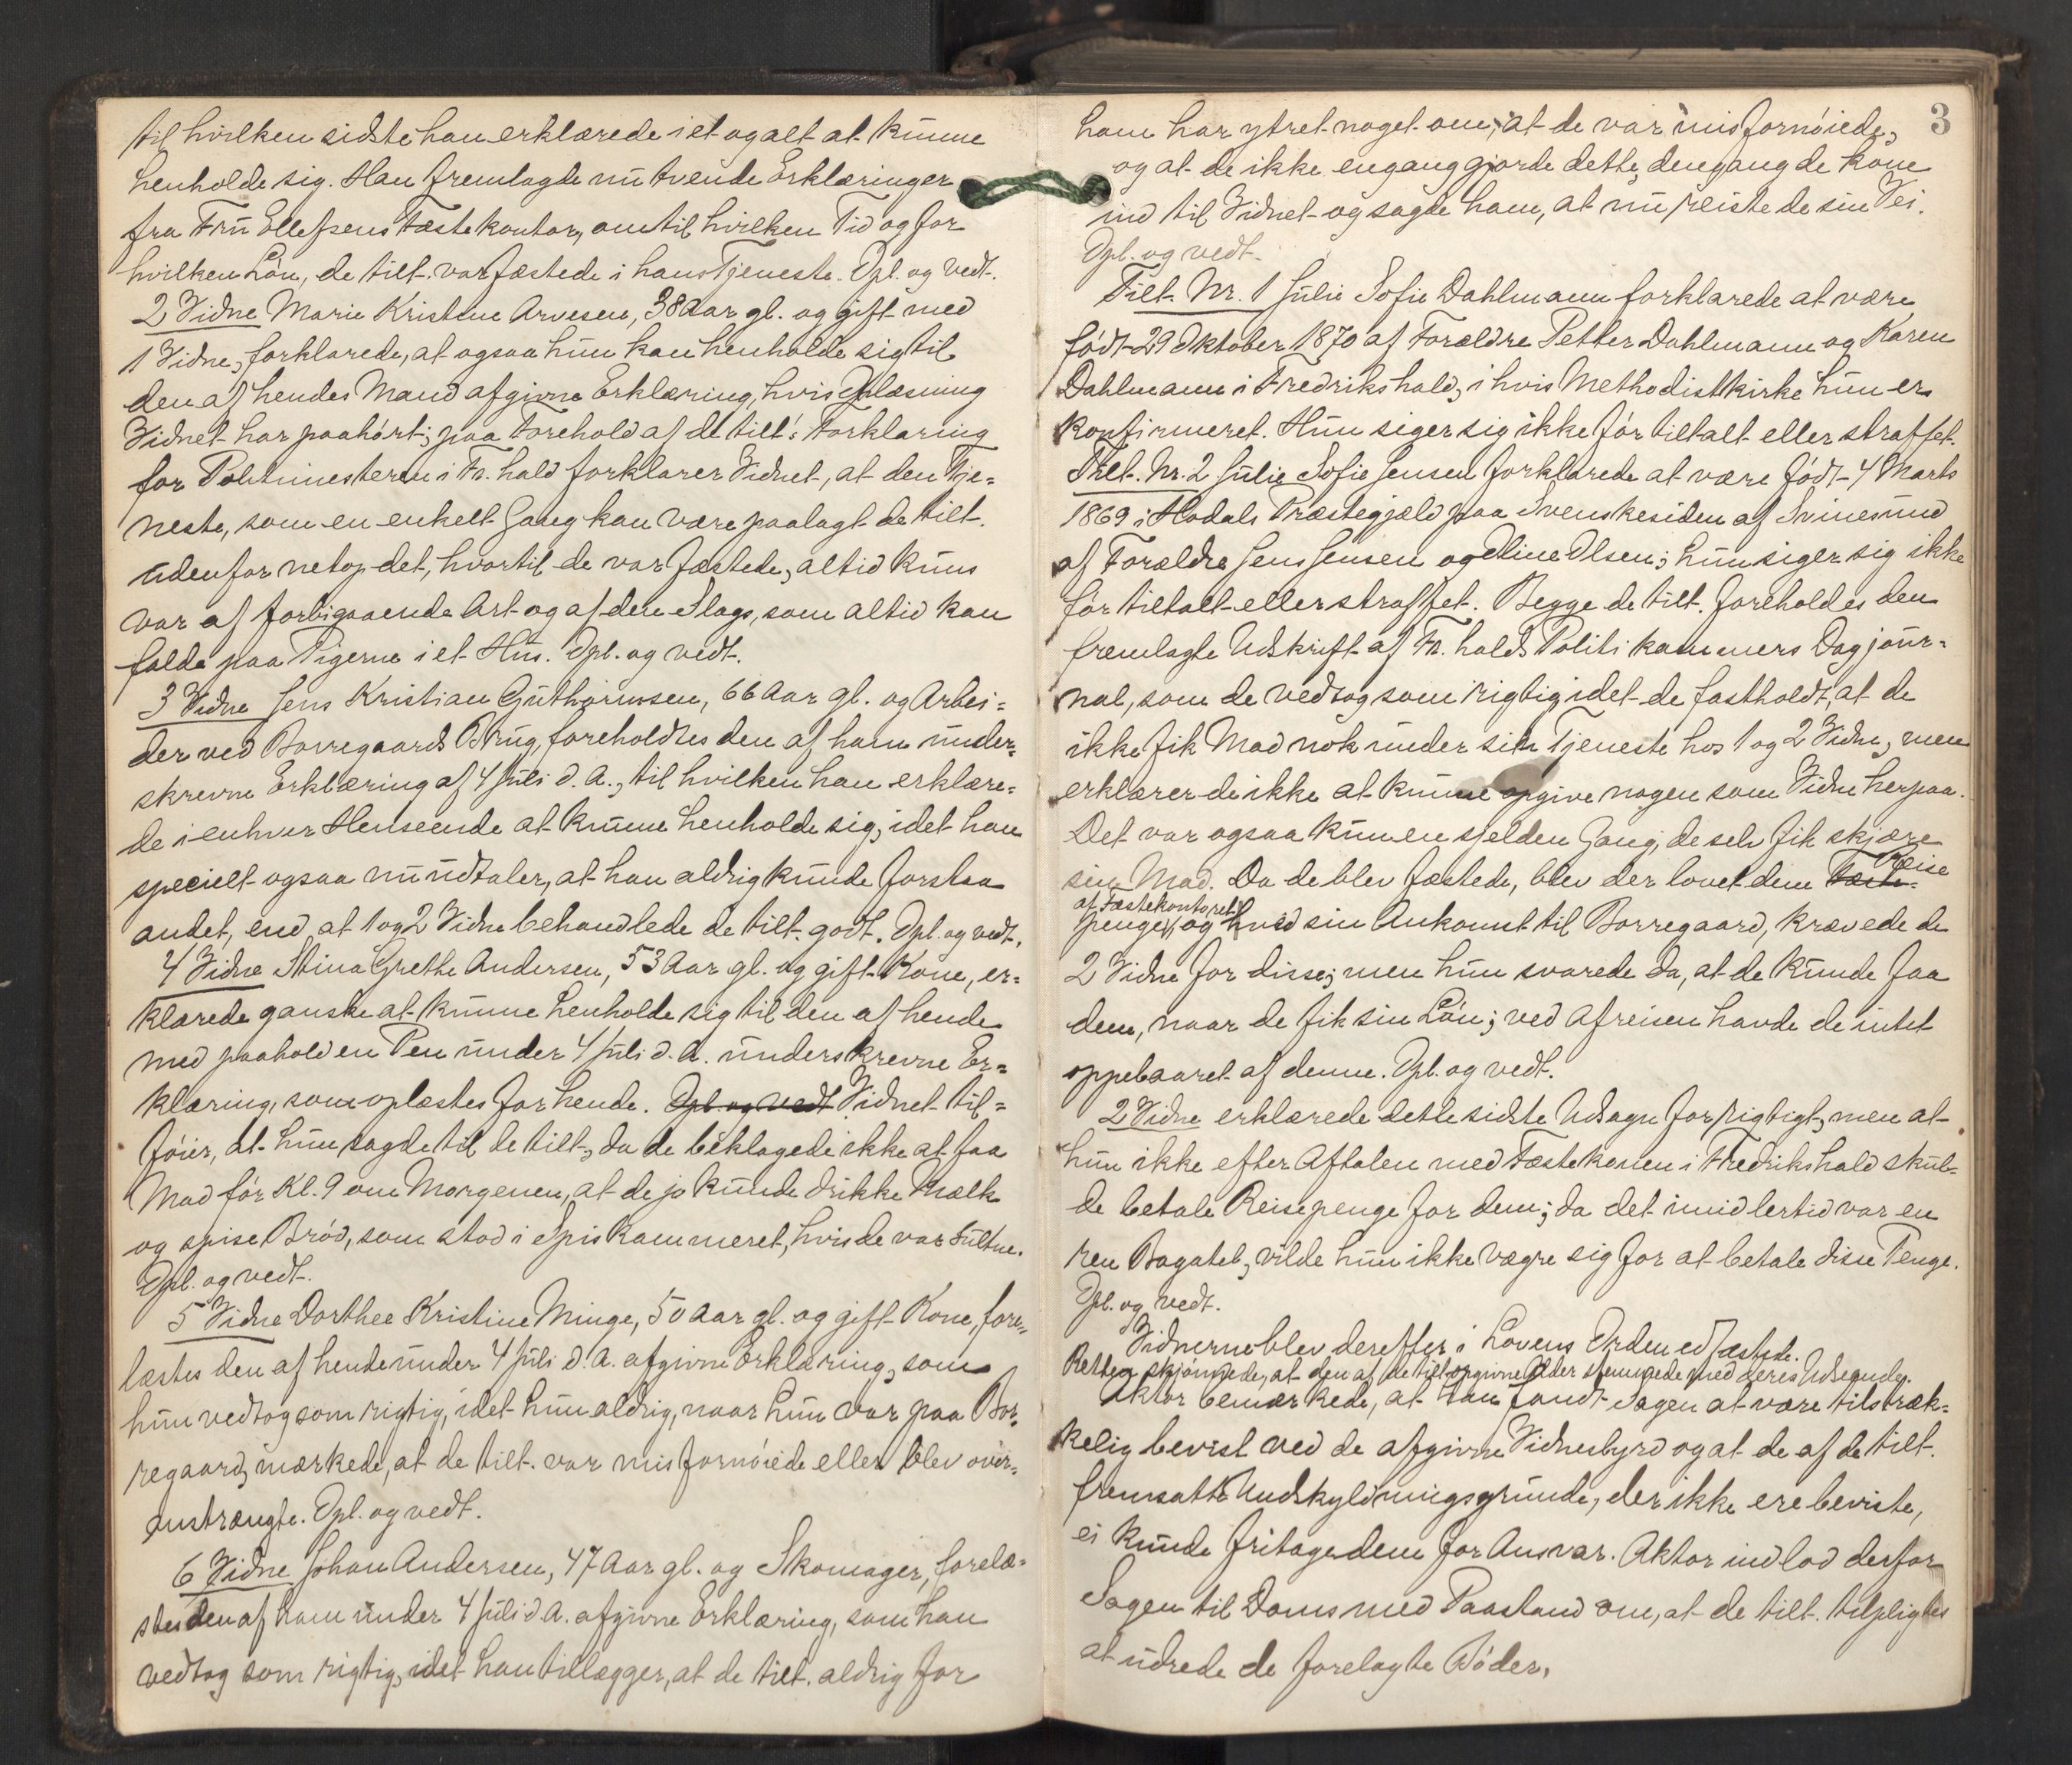 til hvilken sidste han erklærede i et og alt at kunne
henholde sig. Han fremlagde nu tvende Erklæringer
fra Fru Ellefsens Fæstekontor, om til hvilken Tid og for
hvilken Løn, de tilt. var fæstede i hans Tjeneste. Opl. og vedt.
2 Vidne Marie Kristine Arvesen, 38 Aar gl. og gift med
1 Vidne, forklarede, at ogsaa hun kan henholde sig til
den af hendes Mand afgivne Erklæring, hvis Oplæsning
Vidnet har paahørt; paa Forehold af de tilt's Forklaring
for Politimesteren i Fr.hald forklarer Vidnet, at den Tje=
neste, som en enkelt Gang kan være paalagt de tilt.
udenfor netop det, hvortil de var fæstede, altid kuns
var af forbigaaende Art og af den Slags, som altid kan
falde paa Pigerne i et Hus. Opl. og vedt.
3 Vidne Jens Kristian Guthormsen, 66 Aar gl. og Arbei=
der ved Borregaards Brug, foreholdtes den af ham under=
skrevne Erklæring af 4 Juli d. A., til hvilken han erklære=
de i enhver Henseende at kunne henholde sig, idet han
specielt ogsaa nu udtaler, at han aldrig kunde forstaa
andet, end at 1 og 2 Vidne behandlede de tilt. godt. Opl. og vedt.
4 Vidne Stina Grethe Andersen, 53 Aar gl. og gift Kone, er=
klærede ganske at kunne henholde sig til den af hende
med paaholden Pen under 4 Juli d. A. underskrevne Er=
klæring, som oplæstes for hende. Opl. og vedt. Vidnet til=
føier, at hun sagde til de tilt., da de beklagede ikke at faa
Mad før Kl. 9 om Morgenen, at de jo kunde drikke Mælk
og spise Brød, som stod i Spiskammeret, hvis de var sultne.
Opl. og vedt.
5 Vidne Dorthee Kristine Minge, 50 Aar gl. og gift Kone, fore=
læstes den af hende under 4 Juli d. A. afgivne Erklæring, som
hun vedtog som rigtig, idet hun aldrig, naar hun var paa Bor=
regaard, mærkede, at de tilt. var misfornøiede eller blev over=
anstrængte. Opl. og vedt.
6 Vidne Johan Andersen, 47 Aar gl. og Skomager, forelæ=
stes den af ham under 4 Juli d. A. afgivne Erklæring, som han
vedtog som rigtig, idet han tillægger, at de tilt. aldrig for
3
ham har ytret noget om, at de var misfornøiede,
og at de ikke engang gjorde dette, dengang de kom
ind til Vidnet og sagde ham, at nu reiste de sin Vei.
Opl. og vedt.
Tilt. Nr. 1 Julie Sofie Dahlmann forklarede at være
født 29 Oktober 1870 af Forældre Petter Dahlmann og Karen
Dahlmann i Fredrikshald, i hvis Methodistkirke hun er
konfirmeret. Hun siger sig ikke før tiltalt eller straffet.
Tilt. Nr. 2 Julie Sofie Jensen forklarede at være født 4 Marts
1869 i Hodals Præstegjæld paa Svenskesiden af Svinesund
af Forældre Jens Jensen og Oline Olsen; hun siger sig ikke
før tiltalt eller straffet. Begge de tilt. foreholdes den
fremlagte Udskrift af Fr.halds Politikammers Dagjour=
nal, som de vedtog som rigtig idet de fastholdt, at de
ikke fik Mad nok under sin Tjeneste hos 1 og 2 Vidne, men
erklærer de ikke at kunne opgive nogen som Vidne herpaa.
Det var ogsaa kun en sjelden Gang, de selv fik skjære
sin Mad. Da de blev fæstede, blev der lovet dem Reise
af Fæstekontoret
penge, og ved sin Ankomst til Borregaard, krævede de
2 Vidne for disse; men hun svarede da, at de kunde faa
dem, naar de fik sin Løn; ved Afreisen havde de intet
oppebaaret af denne. Opl. og vedt.
2 Vidne erklærede dette sidste Udsagn for rigtigt, men at
hun ikke efter Aftalen med Fæstekonen i Fredrikshald skul=
de betale Reisepenge for dem; da det imidlertid var en
ren Bagatel, vilde hun ikke vægre sig for at betale disse Penge.
Opl. og vedt.
Vidnerne blev derefter i Lovens Orden edfæstede.
Retten skjønnede, at den af de tilt. opgivne Alder stemmede med deres Udseende.
Aktor bemærkede, at han fandt Sagen at være tilstræk=
kelig bevist ved de afgivne Vidnesbyrd og at de af de tilt.
fremsatte Undskyldningsgrunde, der ikke ere beviste,
ei kunde fritage dem for Ansvar. Aktor indlod derfor
Sagen til Doms med Paastand om, at de tilt. tilpligtes
at udrede de forelagte Bøder,